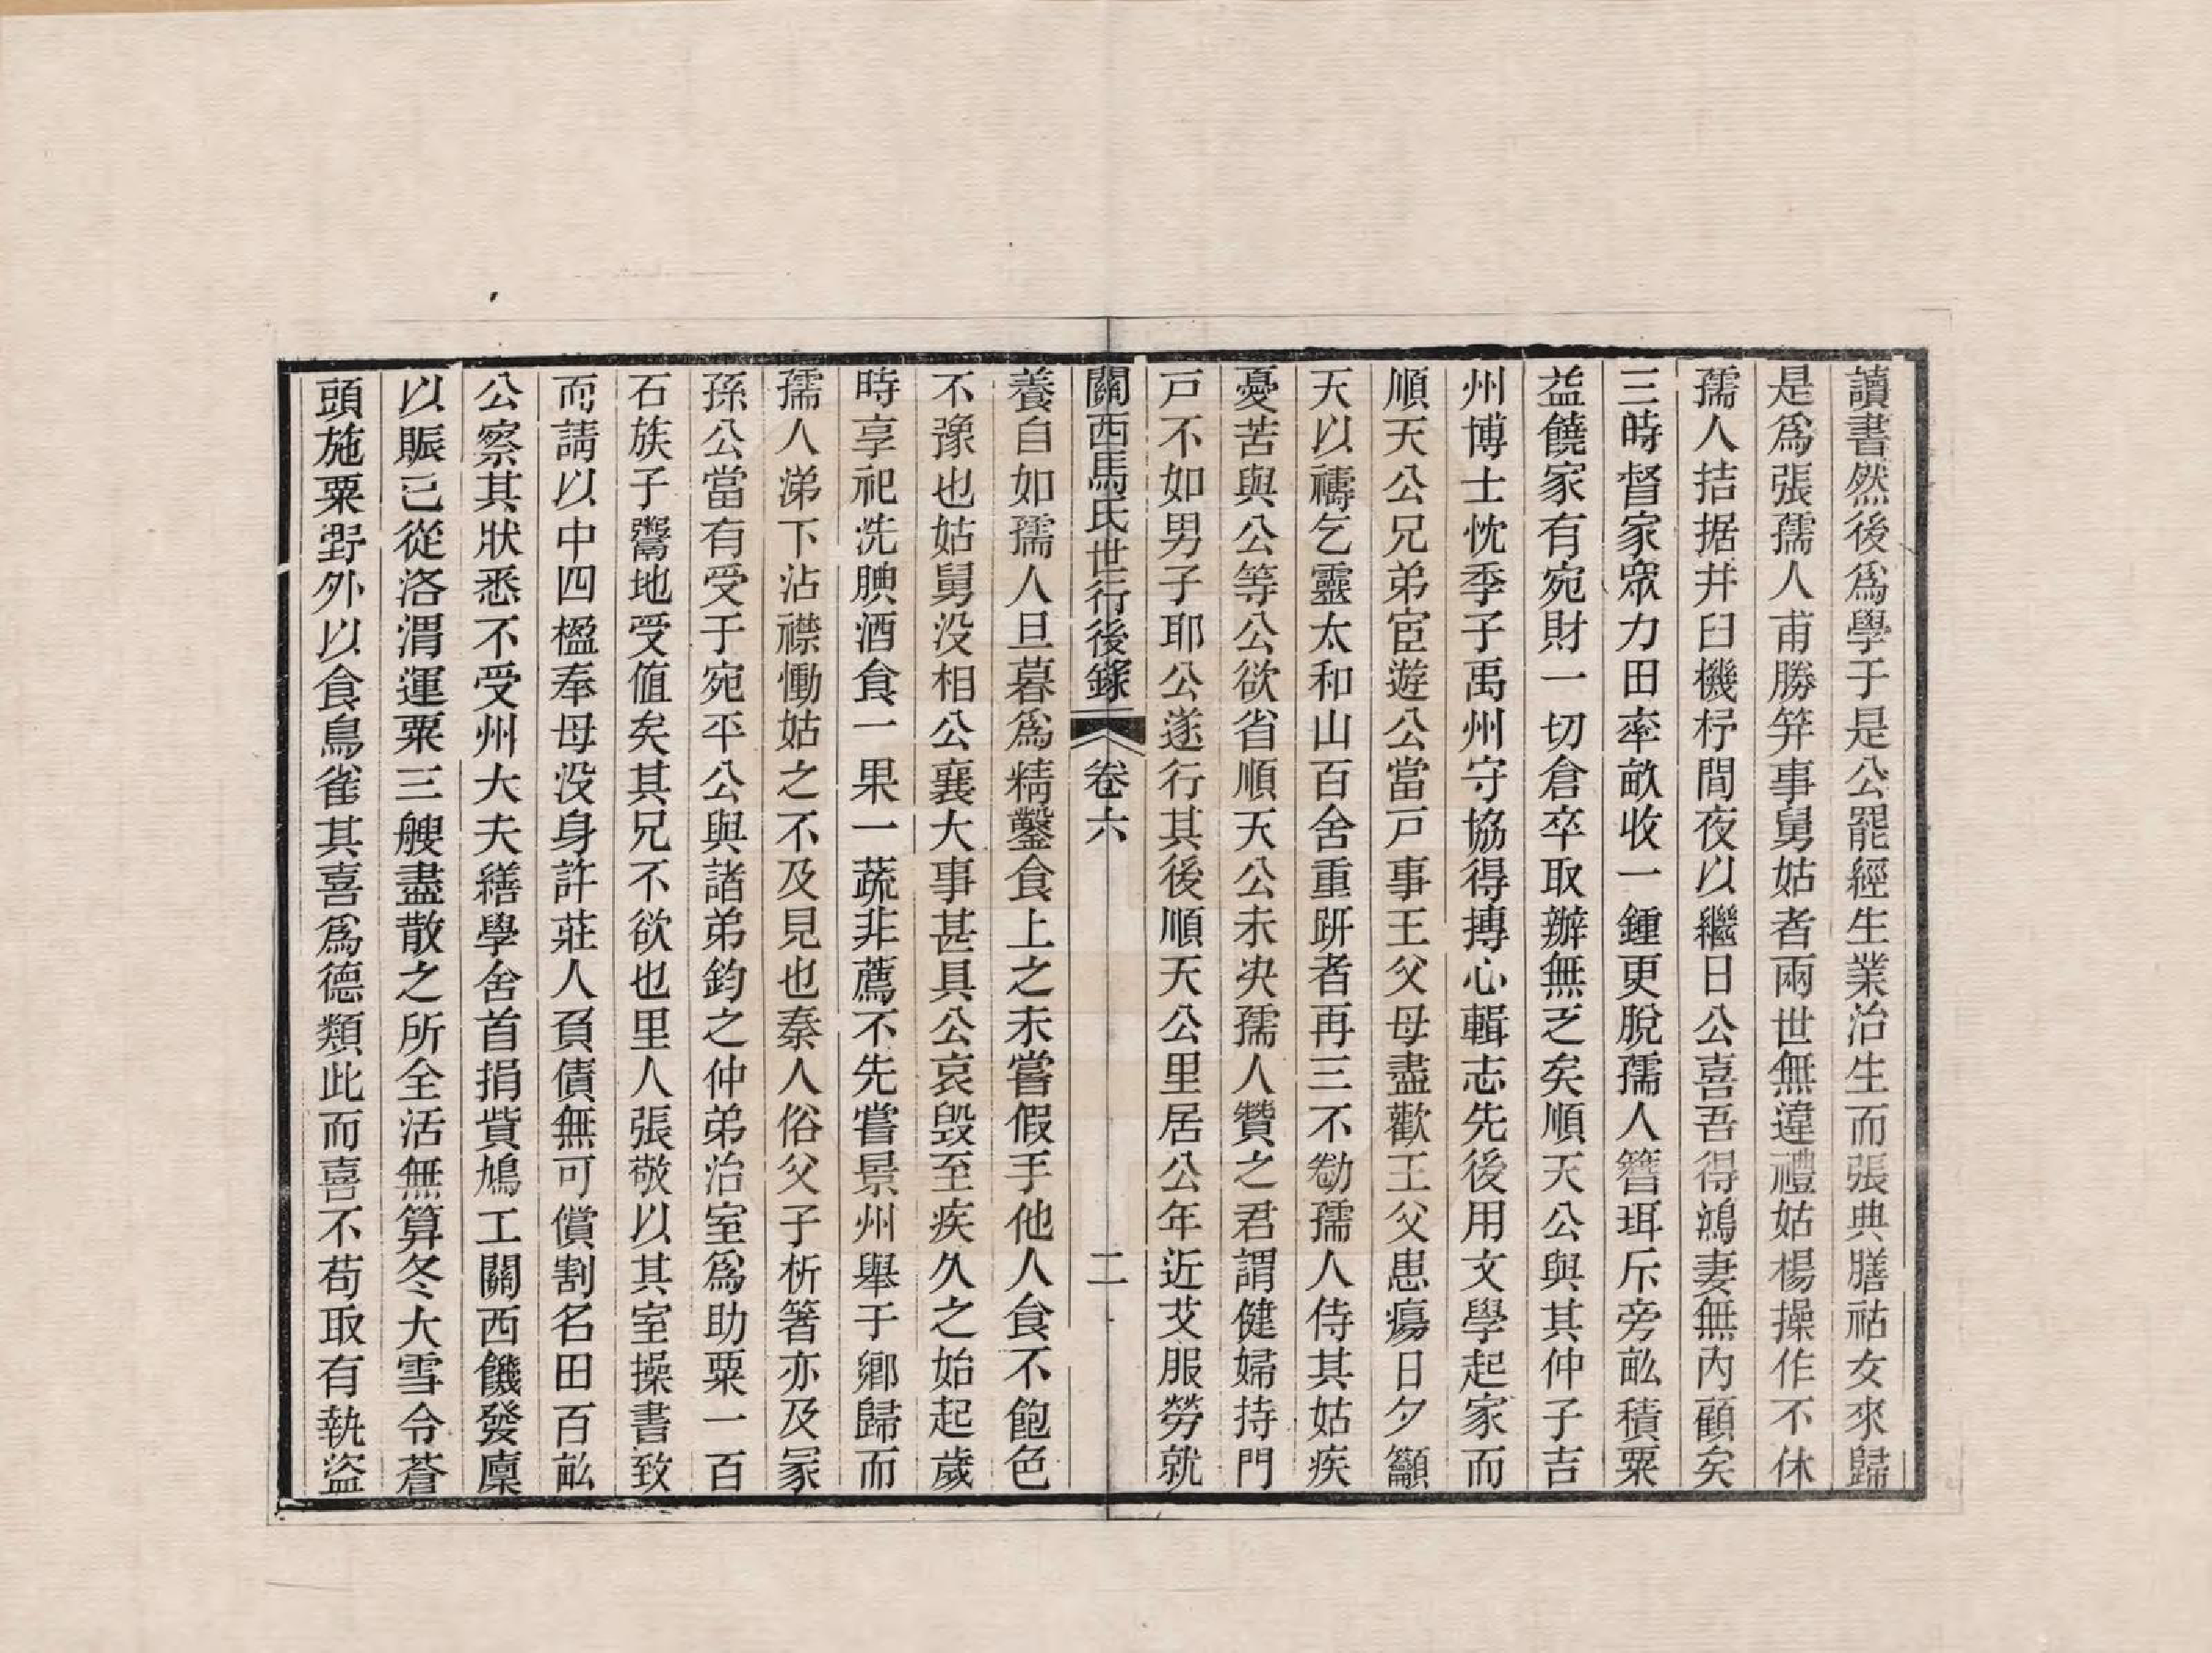 讀書然後爲學于是公罷經生業治生而張典膳祜女來歸
是爲張孺人甫勝笄事舅姑者兩世無違禮姑楊操作不休
孺人拮据井臼機杼間夜以繼日公喜吾得鴻妻無內顧矣
三時督家眾力田率畝收一鍾更脫孺人簪珥斥旁畝積粟
益饒家有宛財一切倉卒取辦無乏矣順天公與其仲子吉
州博士忱季子禹州守協得摶心輯志先後用文學起家而
順天公兄弟宦遊公當戸事王父母盡歡王父患瘍日夕籲
天以禱乞靈太和山百舍重趼者再三不勌孺人侍其姑疾
憂苦與公等公欲省順天公未決孺人贊之君謂健婦持門
戸不如男子耶公遂行其後順天公里居公年近艾服勞就
關西馬氏世行後錄 卷六 二
養自如孺人旦暮爲精鑿食上之未嘗假手他人食不飽色
不豫也姑舅没相公襄大事甚具公哀毀至疾久之始起歲
時享祀洗腆酒食一果一蔬非薦不先嘗景州舉于鄉歸而
孺人涕下沾襟慟姑之不及見也秦人俗父子析箸亦及冡
孫公當有受于宛平公與諸弟鈞之仲弟治室爲助粟一百
石族子鬻地受値矣其兄不欲也里人張敬以其室操書致
而請以中四楹奉母没身許莊人負債無可償割名田百畝
公察其狀悉不受州大夫繕學舍首捐貲鳩工關西饑發廩
以賑已從洛渭運粟三艘盡散之所全活無算冬大雪令蒼
頭施粟野外以食鳥雀其喜爲德類此而喜不苟取有執盜